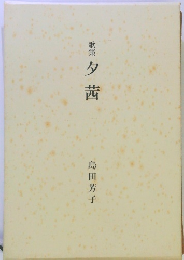 歌集
夕茜
島田芳子